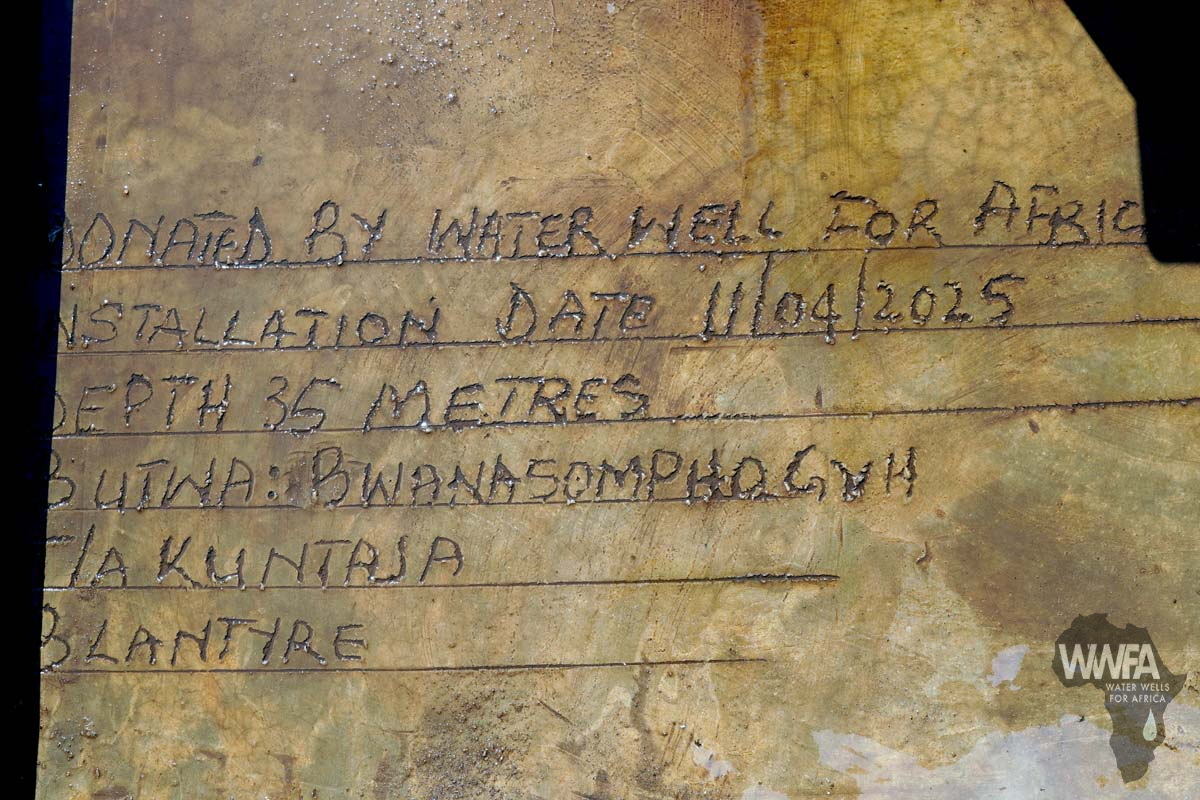 DONATED BY WATER WELL FOR AFRIC
INSTALLATION DATE 11/04/2025
DEPTH 35 METRES
BUTWA: BWANASOMPHO GVH
T/A KUNTAJA
BLANTYRE
WWFA
WATER WELLS
FOR AFRICA